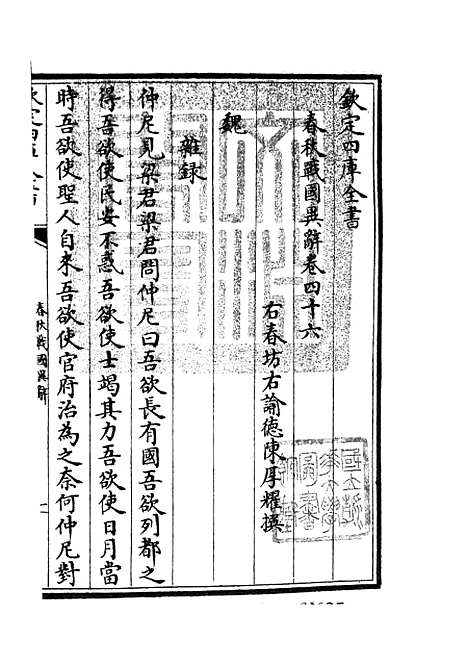 欽定四庫全書
春秋戰國異辭卷四十六
右春坊右諭徳陳厚耀撰
魏
雜録
仲尼見梁君梁君問仲尼曰吾欲長有國吾欲列都之
得吾欲使民安不惑吾欲使士竭其力吾欲使日月當
時吾欲使聖人自來吾欲使官府治為之奈何仲尼對
春秋戰國異辭